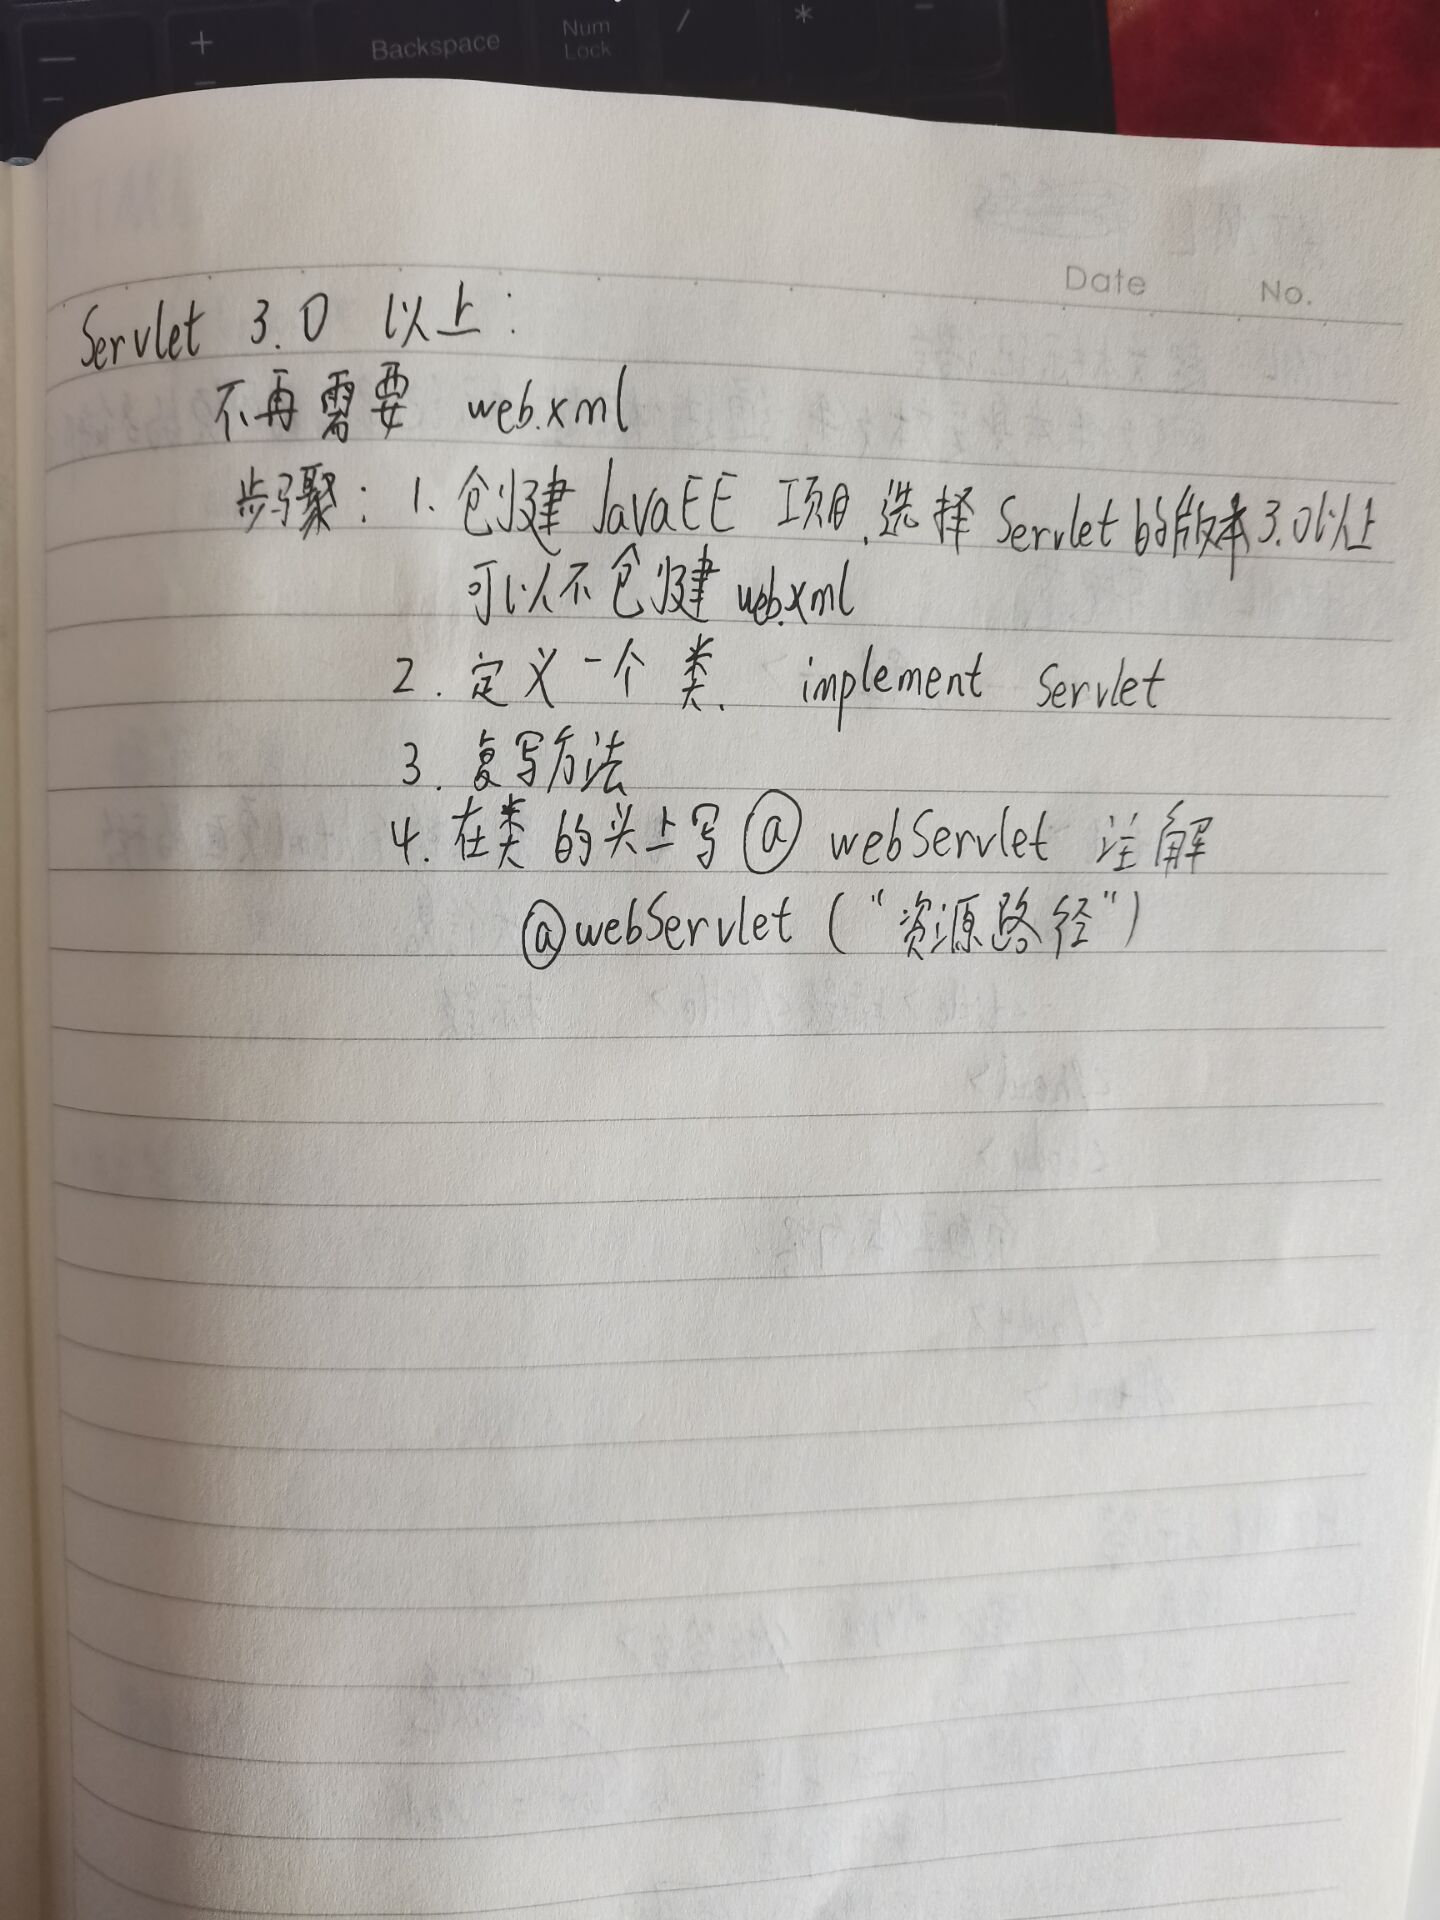 Backspace
Num
Lock
/
*
-
+
Date
No.
Servlet 3.0 以上:
不再需要 web.xml
步骤: 1. 创建 JavaEE 项目.选择 Servlet的版本3.0以上
可以不创建 web.xml
2. 定义一个类. implement Servlet
3. 复写方法
4. 在类的头上写 @ webServlet 注解
@webServlet ("资源路径")